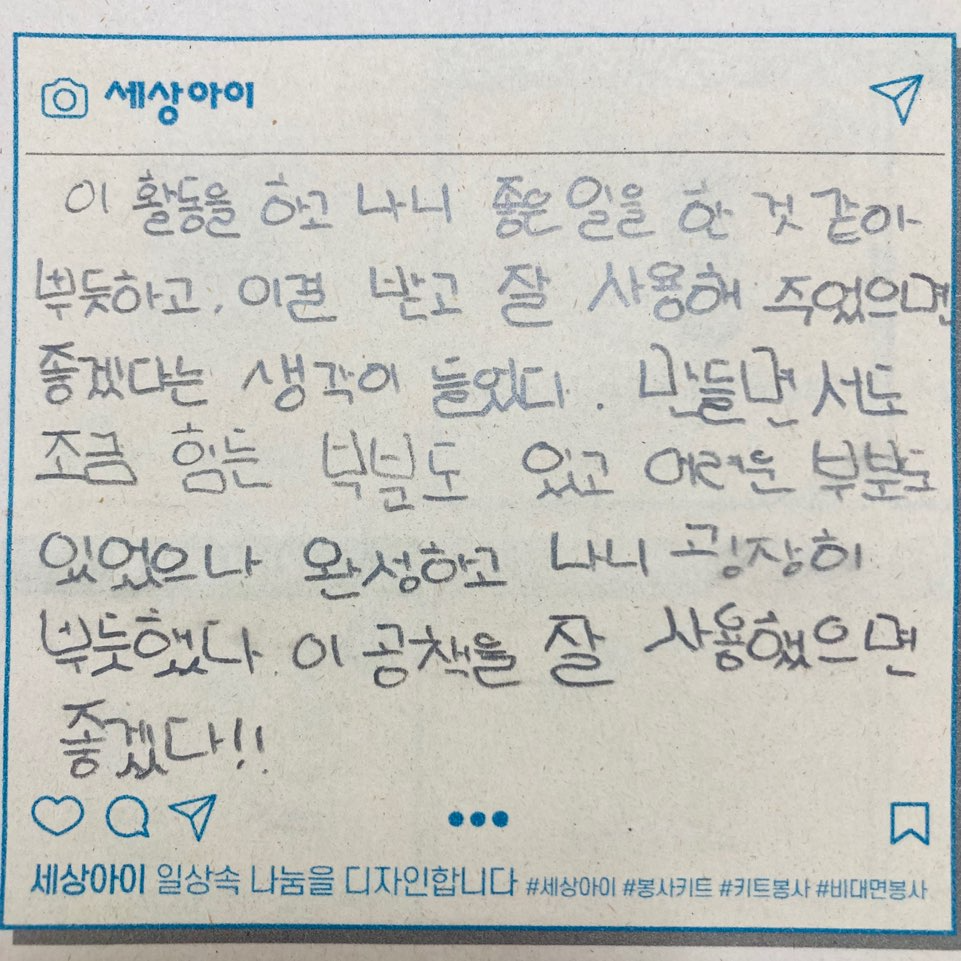 세상아이
이 활동을 하고 나니 좋은 일을 한 것 같아
뿌듯하고, 이걸 받고 잘 사용해 주었으면
좋겠다는 생각이 들었다. 만들면서도
조금 힘든 부분도 있고 어려운 부분도
있었으나 완성하고 나니 굉장히
뿌듯했다 이 공책을 잘 사용했으면
좋겠다!!
세상아이 일상속 나눔을 디자인합니다 #세상아이 #봉사키트 #키트봉사 #비대면봉사